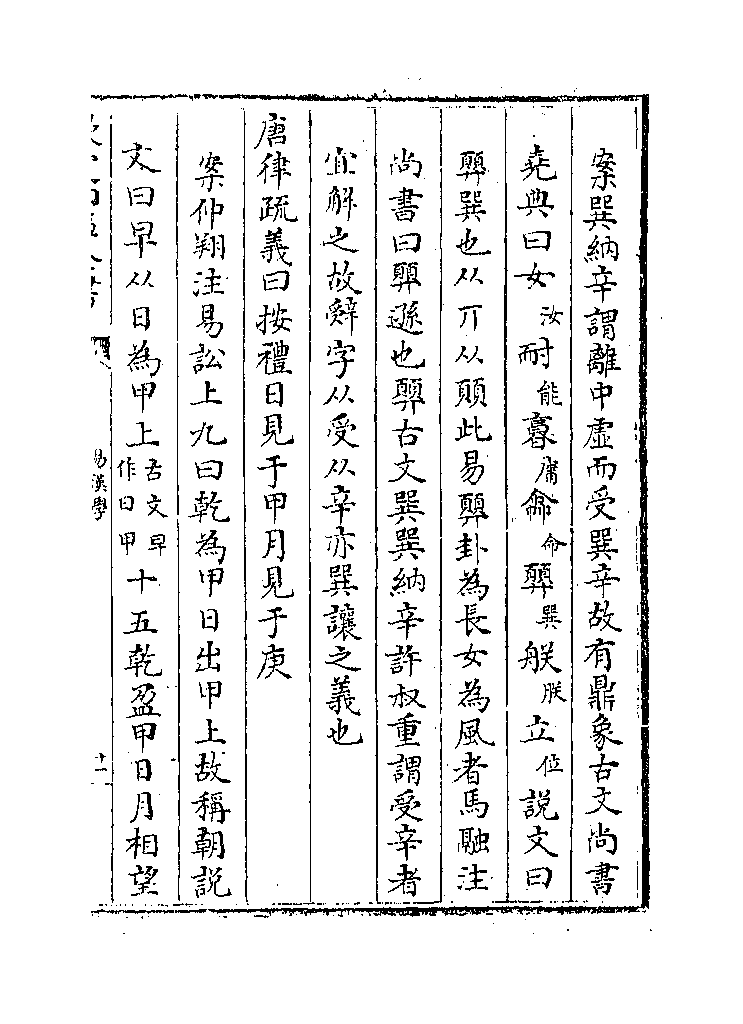 案巽納辛謂離中虛而受巽辛故有鼎象古文尚書
堯典曰女汝耐能㬥庸命顨巽䑣朕立位說文曰
顨巽也从丌从頭此易顨卦為長女為風者馬融注
尚書曰顨遜也顨古文巽巽納辛許叔重謂受辛者
宜解之故辤字从受从辛亦巽讓之義也
唐律疏義曰按禮日見于甲月見于庚
案仲翔注易訟上九曰乾為甲日出甲上故稱朝說
文曰早从日為甲上古文早作日甲十五乾盈甲日月相望
易漢學
十一